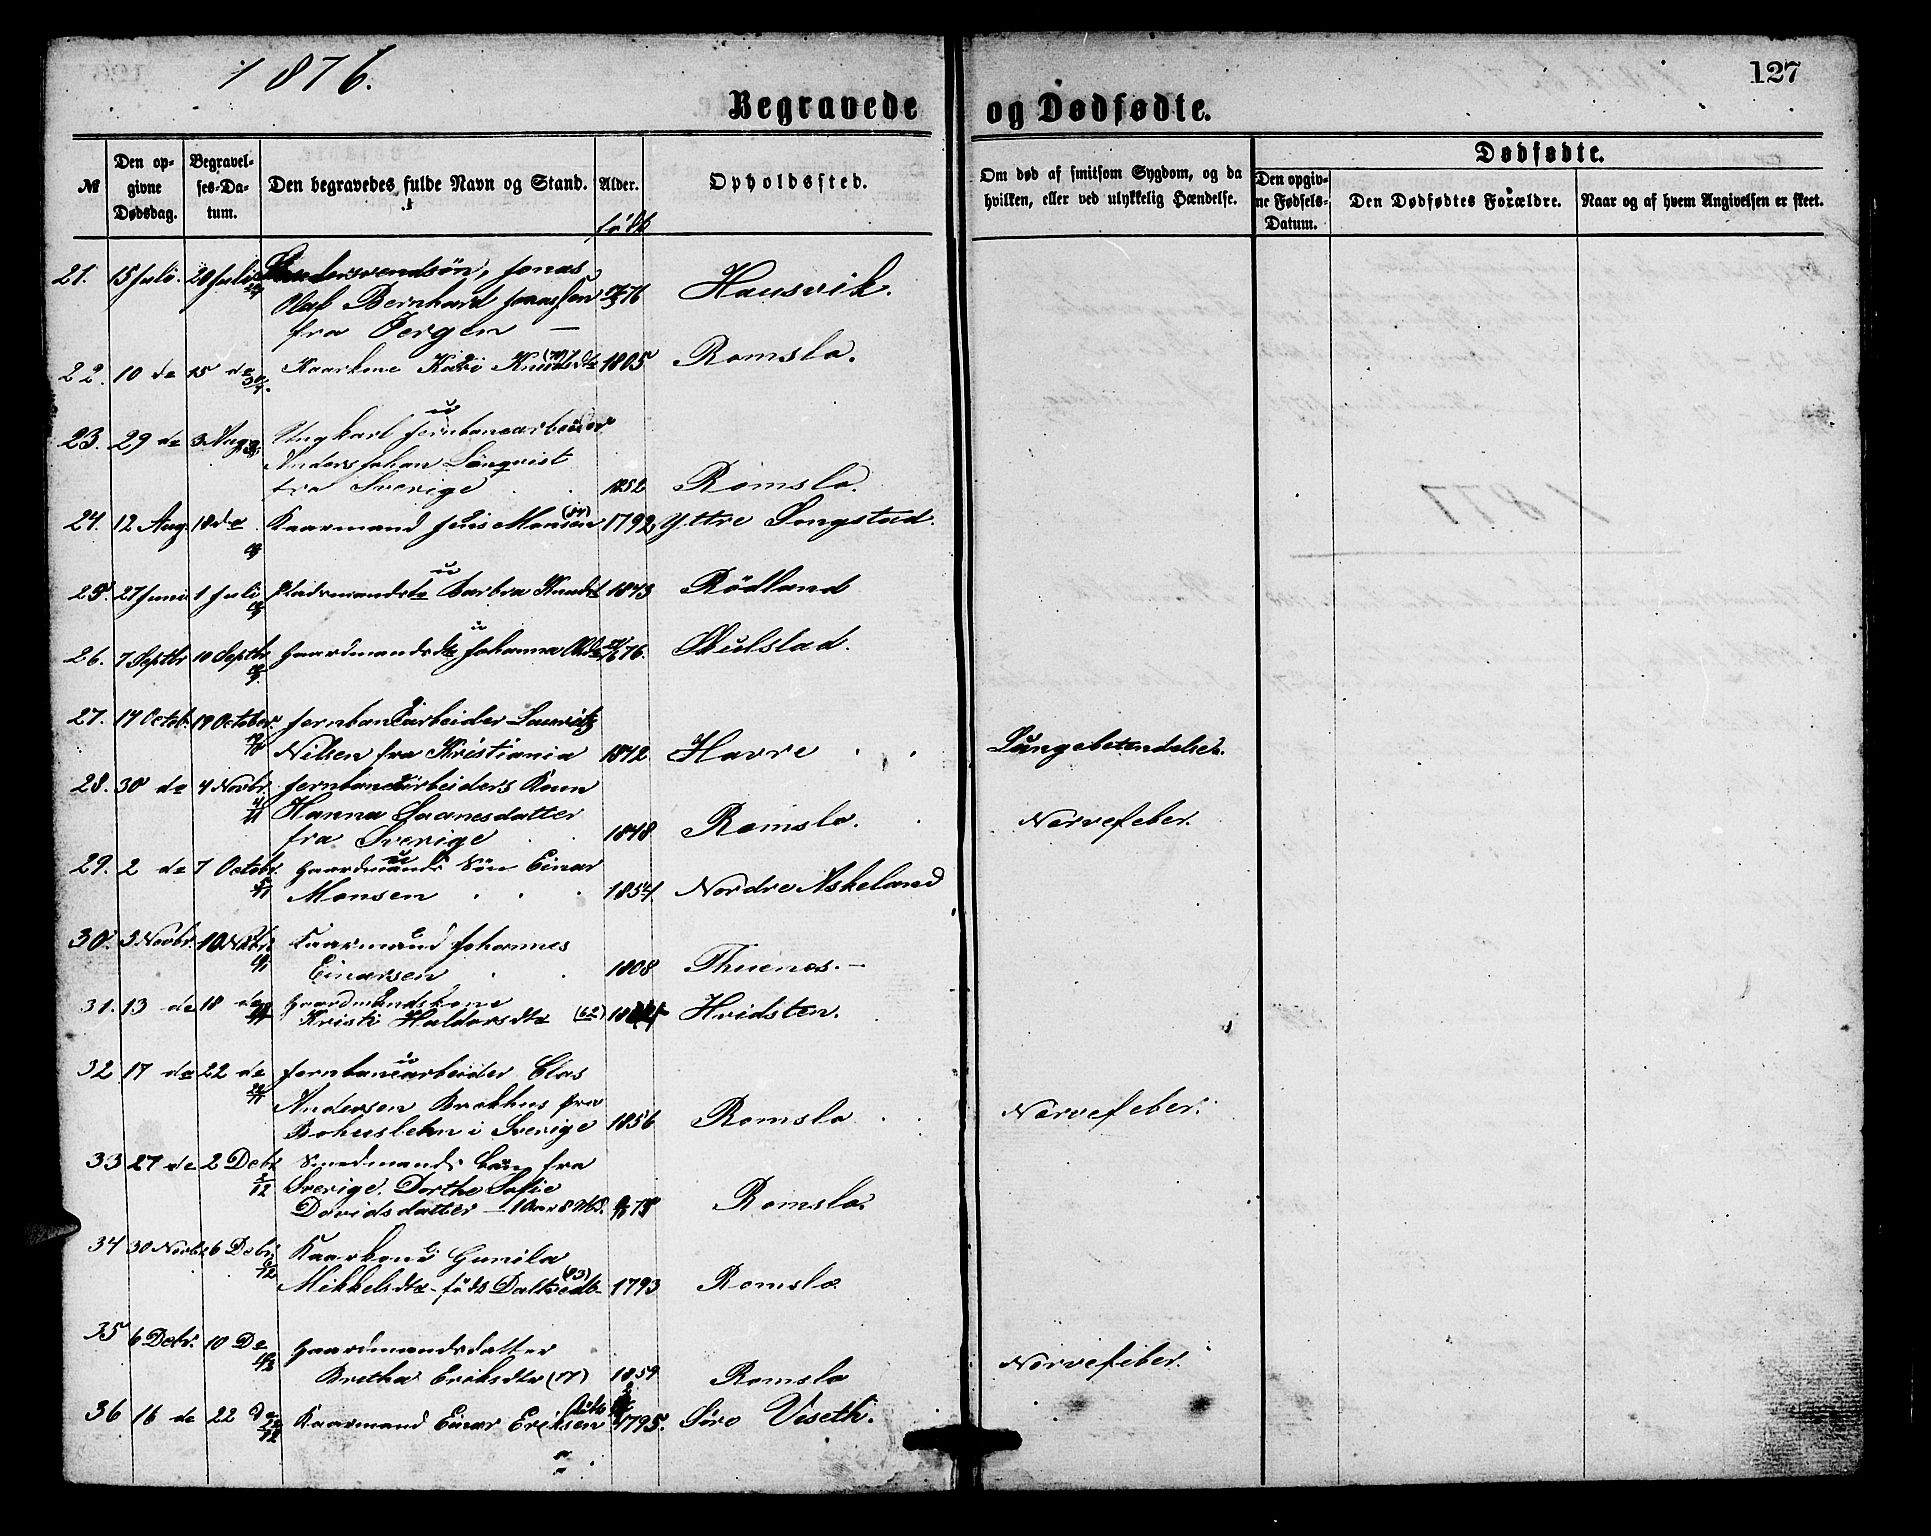 1876.
127
Begravede og Dødfødte.
№
Den op-
givne
Dødsdag.
Begravel-
ses-Da-
tum.
Den begravedes fulde Navn og Stand.
Alder.
født
Opholdssted.
Om død af smitsom Sygdom, og da
hvilken, eller ved ulykkelig Hændelse.
Dødfødte.
Den opgiv-
ne Fødsels-
Datum.
Den Dødfødtes Forældre.
Naar og af hvem Angivelsen er skeet.
21. 15 Juli. 20 Juli Jonas
Olaf Bernhard Jonassen 76 Hausvik.
fra Bergen —
22. 10 de 15 de Kaarkone Kari Knudsdtr 1805 Romslo.
23. 29 de 3 Aug. Ungkarl Jernbanearbeider
Anders Johan Lönqvist
fra Sverige 1852 Romslo.
24. 12 Aug. 18 de Kaarmand Jens Monsen (84) 1792 Yttre Songstad.
25. 27 Juni 1 Juli Pladsmandsdtr Barbra Knudsd 1873 Rödland
26. 7 Septbr 10 Septbr Gaardmandsdtr Johanna 76. Skulstad.
27. 14 Octob. 19 October Jernbanearbeider Lauritz
Nilsen fra Kristiania 1842 Havre Lungebetendelse.
28. 30 de 4 Novbr. Jernbanearbeiders Kone
Hanna
fra Sverige 1848. Romslo. Nervefeber.
29. 2 de 7 Octobr. Gaardmands Sön Einar
Monsen 1854. Nordre Askeland
30. 5 Novbr. 10 Novbr. Kaarmand Johannes
Einarsen 1808 Thuenes. —
31. 13 de 18 de Gaardmandskone
Kristi Haldorsdtr (62) Hvidsten.
32 17 de 22 de Jernbanearbeider Clas
Andersen Brekhus fra
Bohuslehn i Sverige 1856 Romslo Nervefeber.
33 27 de 2 Debr Smedmands Barn fra
2/12 Sverige. Dorthe Sofie
Davidsdatter — 1 Aar 8 Md. 75 Romslo.
34 30 Novbr 6 Debr. Kaarkone Gunila
6/12 Mikkelsdtr — født (83) 1793 Romslo
35 6 Debr. 10 De Gaardmandsdatter
Bretha Eriksdtr (17) 1859 Romslo Nervefeber.
36 16 de 22 de Kaarmand Einar Eriksen 1795. Søre Viseth.
1877